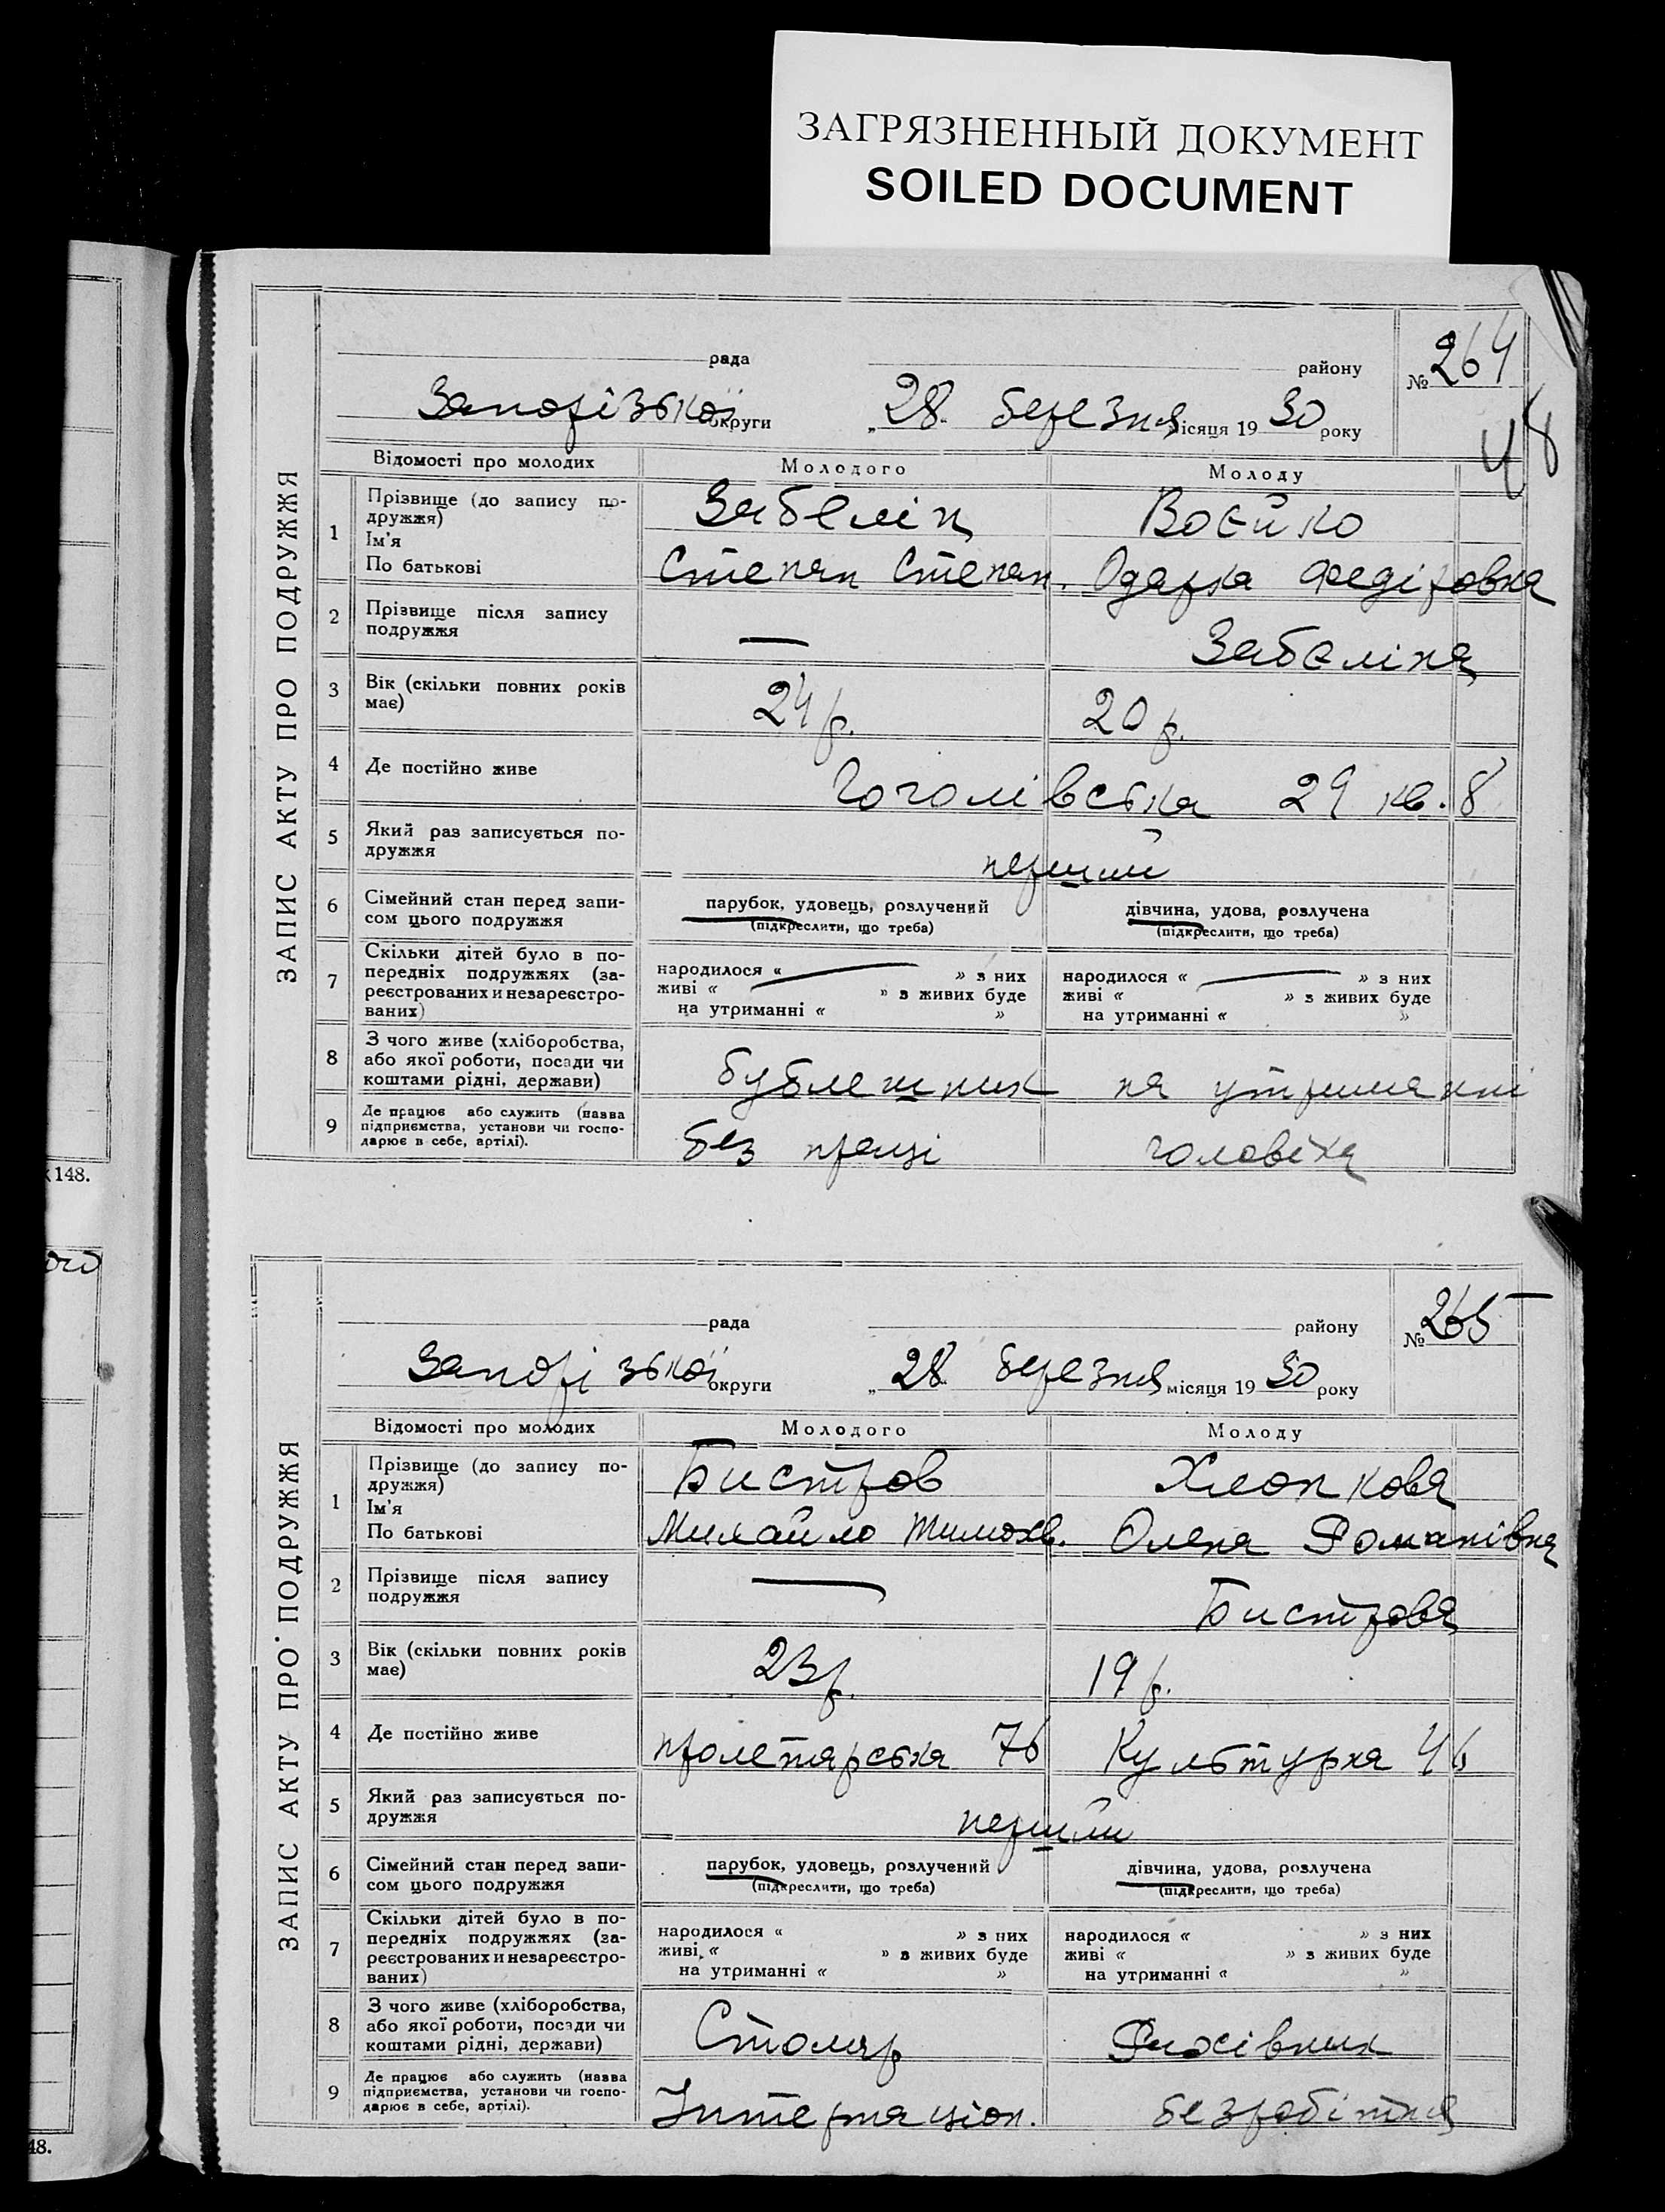 ЗАГРЯЗНЕННЫЙ ДОКУМЕНТ
SOILED DOCUMENT
ЗАПИС АКТУ ПРО ПОДРУЖЖЯ
рада района № 264
Запорізької округи „28 березня місяця 1930 року
48
Відомості про молодих Молодого Молоду
1 Прізвище (до запису по-
дружжя) Забелін Воєйко
Ім'я
По батькові Степан Степан. Одарка Федіровна
2 Прізвище після запису
подружжя — Забєліна
3 Вік (скільки повних років
має) 24 р. 20 р.
4 Де постійно живе Гоголівська 29 кв. 8
5 Який раз записується по-
дружжя перший
6 Сімейний стан перед запи-
сом цього подружжя
парубок, удовець, розлучений дівчина, удова, розлучена
(підкреслити, що треба) (підкреслити, що треба)
7 Скільки дітей було в по-
передніх подружжях (за-
реєстрованих и незареєстро-
ваних)
народилося « » з них народилося « » з них
живі « » з живих буде живі « » з живих буде
на утриманні « » на утриманні « »
8 З чого живе (хліборобства,
або якої роботи, посади чи
коштами рідні, держави) бублешник на утриманні
9 Де працює або служить (назва
підприємства, установи чи госпо-
дарює в себе, артілі). без праці чоловіка
148.
ЗАПИС АКТУ ПРО ПОДРУЖЖЯ
рада району № 265
Запорізької округи „28 березня місяця 1930 року
Відомості про молодих Молодого Молоду
1 Прізвище (до запису по-
дружжя) Бистров Хлопкова
Ім'я
По батькові Михайло Тимохв. Олена Романівна
2 Прізвище після запису
подружжя — Бистрова
3 Вік (скільки повних років
має) 23 р. 19 р.
4 Де постійно живе пролетарська 76 Культурна 46
5 Який раз записується по-
дружжя перший
6 Сімейний стан перед запи-
сом цього подружжя
парубок, удовець, розлучений дівчина, удова, розлучена
(підкреслити, що треба) (підкреслити, що треба)
7 Скільки дітей було в по-
передніх подружжях (за-
реєстрованих и незареєстро-
ваних)
народилося « » з них народилося « » з них
живі « » з живих буде живі « » з живих буде
на утриманні « » на утриманні « »
8 З чого живе (хліборобства,
або якої роботи, посади чи
коштами рідні, держави) Столяр
9 Де працює або служить (назва
підприємства, установи чи госпо-
дарює в себе, артілі). Інтернаціон. безробітня
48.